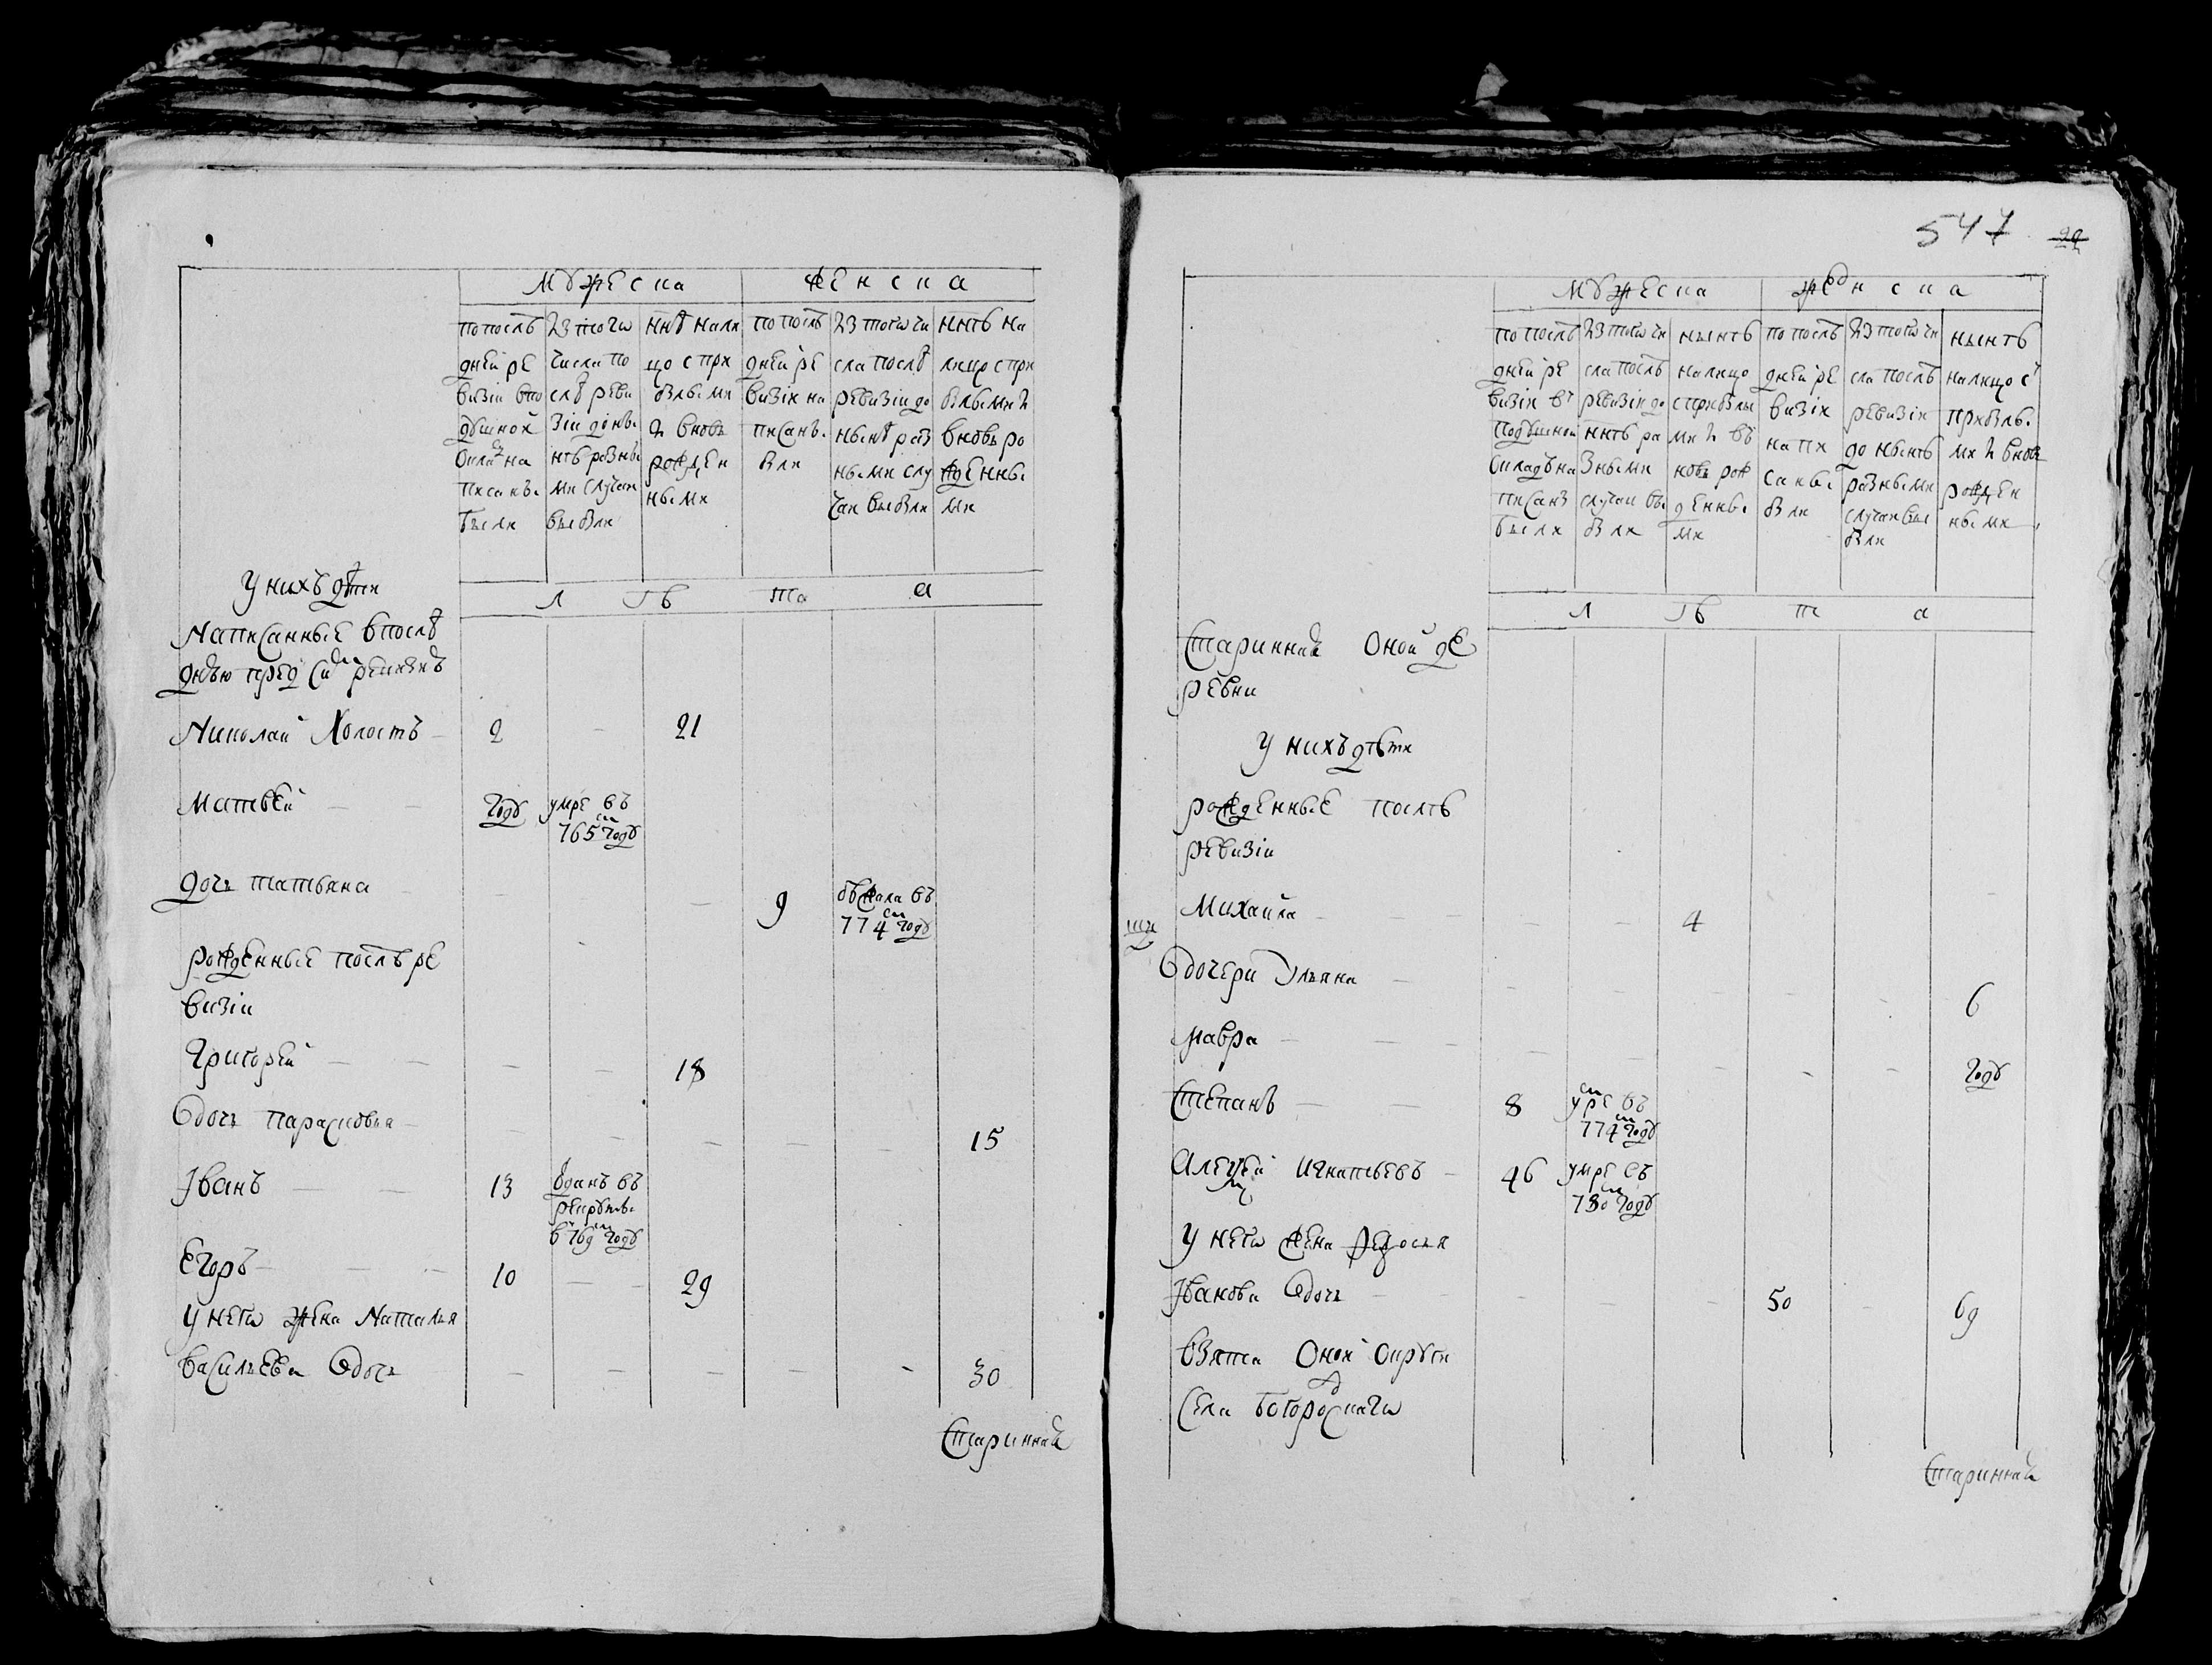 Мужеска Женска
по послѣ
дней ре
визіи впо
душной
окладъ на
писанъ.
были
Изтого
числа по
слѣ реви
зіи доны
нѣ разны
ми случаи
выбыли
ннѣ нали
цо с при
былыми
и вновь
рожден
ными
по послѣ
дней ре
визіи на
писаны
были
Изтого чи
сла послѣ
ревизіи до
нынѣ раз
ными слу
чаи выбыли
ннѣ на
лицо с при
былыми и
вновь ро
жденны
ми
Лѣта
У нихъ дѣти
Написанные впослѣ
днею пред сим ревизию
Николай Холостъ 2 21
Матвей году умре въ
765м году
дочь татьяна 9 бежала въ
774м году
рожденные послѣ ре
визіи
Григорей 18
дочь парасковья 15
Іванъ 13 Отданъ въ
рекруты
в 769м году
Егоръ 10 29
У него жена Наталья
васильева дочь 30
Старинная
547
Мужеска женска
по послѣ
дней ре
визіи в
подушной
окладъ на
писанъ
были
Изтого чи
сла послѣ
ревизіи до
ннѣ ра
зными
случаи вы
были
нынѣ
налицо
с прибылы
ми и въ
новь рож
денны
ми
по послѣ
дней ре
визіи
напи
саны
были
Изтого чи
сла послѣ
ревизіи
до нынѣ
разными
случаи вы
были
нынѣ
налицо с
прибылы
ми и вновь
рожден
ными
Лѣта
Старинная Оной де
ревни
у нихъ дѣти
рожденные послѣ
ревизіи
Михаила 4
дочери Ульяна 6
мавра году
Степанъ 8 умре въ
774м году
Алексей Игнатьевъ 46 умре въ
780м году
У него жена Федосья
Іванова дочь 50 69
взята Оной Округи
Села Богородскаго
Старинная